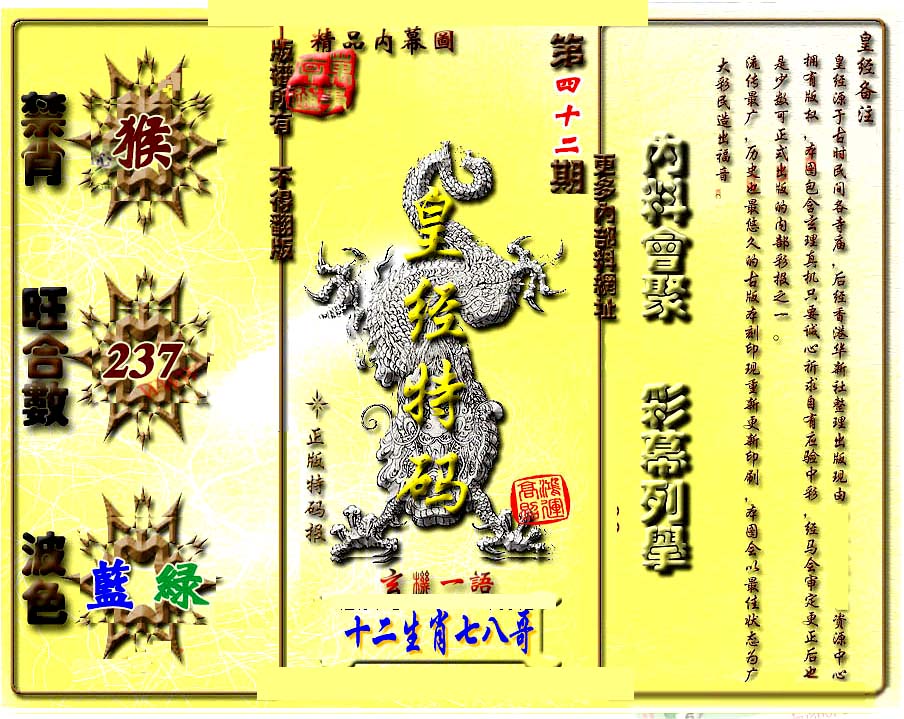 精品内幕圖
版權所有 不得翻版
第四十二期
更多內部料網址
禁肖
猴
旺合數
237
波色
藍 緑
皇经特码
正版特码报
鴻運高照
玄機一語
十二生肖七八哥
内料會聚 彩幕列舉
皇经备注
皇经源于古时民间各寺庙,后经香港华新社整理出版现由 资源中心
拥有版权,本图包含玄理真机只要诚心祈求自有应验中彩,经马会审定更正后也
是少数可正式出版的内部彩报之一。
流传最广,历史也最悠久的古版本刻印现重新更新印刷,本图会以最佳状态为广
大彩民造出福音